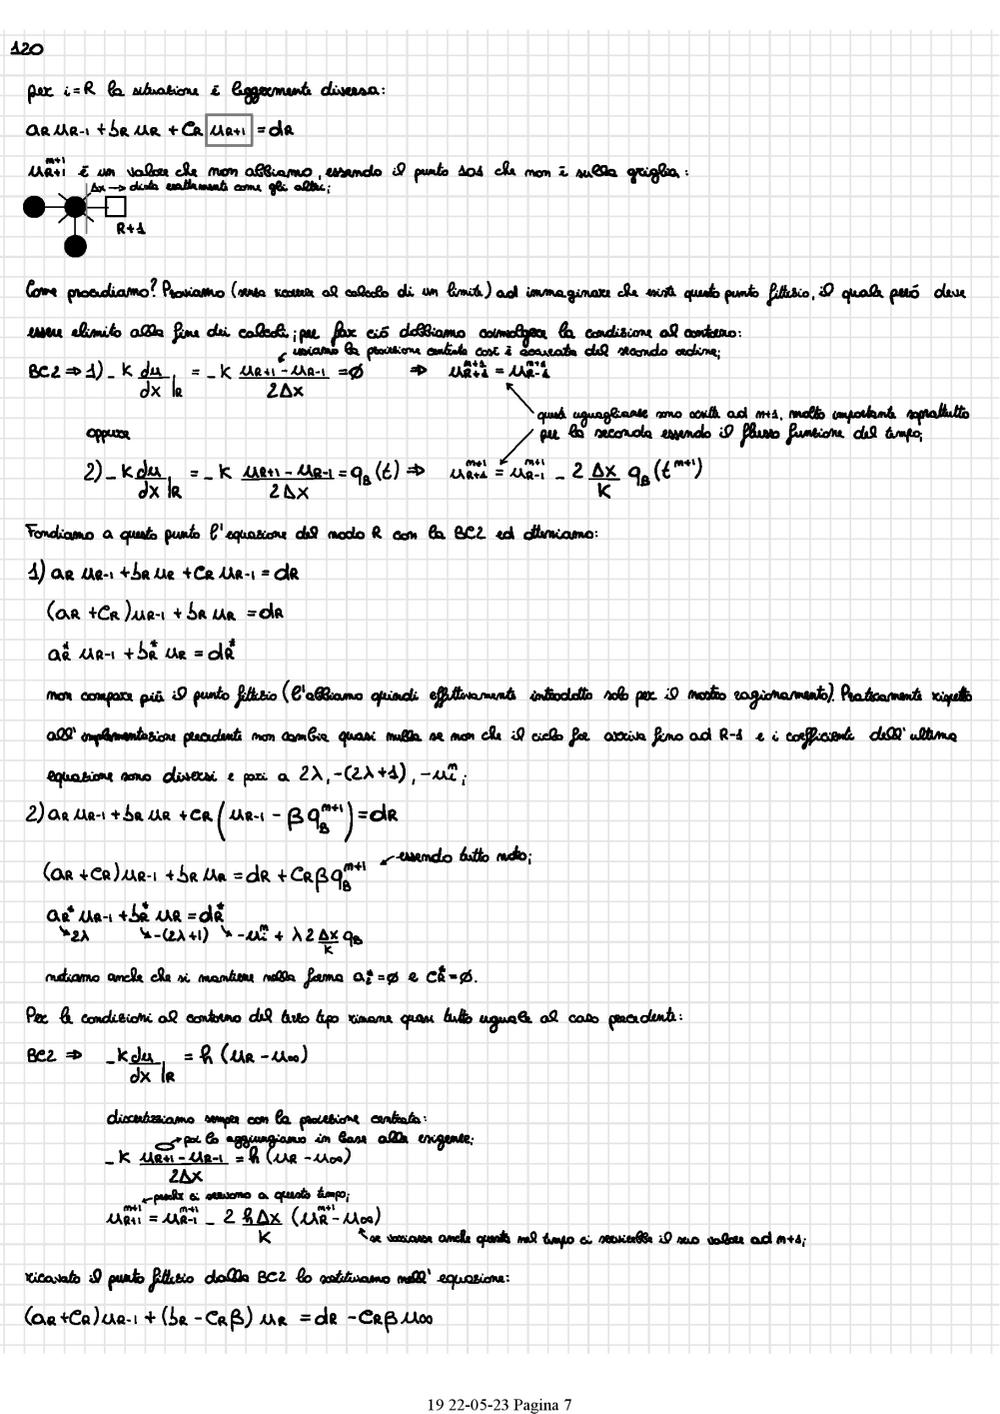 120
per i=R la situazione è leggermente diversa:
aR uR-1 + bR uR + cR uR+1 = dR
u^{n+1}_{R+1} è un valore che non abbiamo, essendo il punto 101 che non è sulla griglia:
Δx → dista esattamente come gli altri;
R+1
Come procediamo? Proviamo (senza ricorrere al calcolo di un limite) ad immaginare che esista questo punto fittizio, il quale però deve
essere elimito alla fine dei calcoli; per far ciò dobbiamo coinvolgere la condizione al contorno:
usiamo la previsione centrata così è accurata del secondo ordine;
BC2 ⇒ 1) -k du/dx|R = -k (uR+1 - uR-1)/2Δx = ∅ ⇒ u^{n+1}_{R+1} = u^{n+1}_{R-1}
queste uguaglianze sono scritte ad n+1, molto importante soprattutto
oppure
per la seconda essendo il flusso funzione del tempo;
2) -k du/dx|R = -k (uR+1 - uR-1)/2Δx = qB(t) ⇒ u^{n+1}_{R+1} = u^{n+1}_{R-1} - 2 Δx/k qB(t^{n+1})
Fondiamo a questo punto l'equazione del nodo R con la BC2 ed otteniamo:
1) aR uR-1 + bR uR + cR uR-1 = dR
(aR + cR) uR-1 + bR uR = dR
aR* uR-1 + bR* uR = dR*
non compare più il punto fittizio (l'abbiamo quindi effettivamente introdotto solo per il nostro ragionamento). Praticamente rispetto
all'implementazione precedente non cambia quasi nulla se non che il ciclo for arriva fino ad R-1 e i coefficienti dell'ultima
equazione sono diversi e pari a 2λ, -(2λ+1), -u_i^n;
2) aR uR-1 + bR uR + cR (uR-1 - β qB^{n+1}) = dR
essendo tutto noto;
(aR + cR) uR-1 + bR uR = dR + cR β qB^{n+1}
aR* uR-1 + bR* uR = dR*
2λ -(2λ+1) -u_i^n + λ 2 Δx/k qB
notiamo anche che si mantiene nella forma a_i* = ∅ e cR* = ∅.
Per le condizioni al contorno del terzo tipo rimane quasi tutto uguale al caso precedente:
BC2 ⇒ -k du/dx|R = h (uR - u∞)
discretizziamo sempre con la previsione centrata:
poi lo aggiungiamo in base alle esigenze;
-k (uR+1 - uR-1)/2Δx = h (uR - u∞)
perché ci servono a questo tempo;
u^{n+1}_{R+1} = u^{n+1}_{R-1} - 2 hΔx/k (u^{n+1}_R - u∞)
se variasse anche questo nel tempo ci servirebbe il suo valore ad n+1;
ricavato il punto fittizio dalla BC2 lo sostituiamo nell'equazione:
(aR + cR) uR-1 + (bR - cR β) uR = dR - cR β u∞
19 22-05-23 Pagina 7